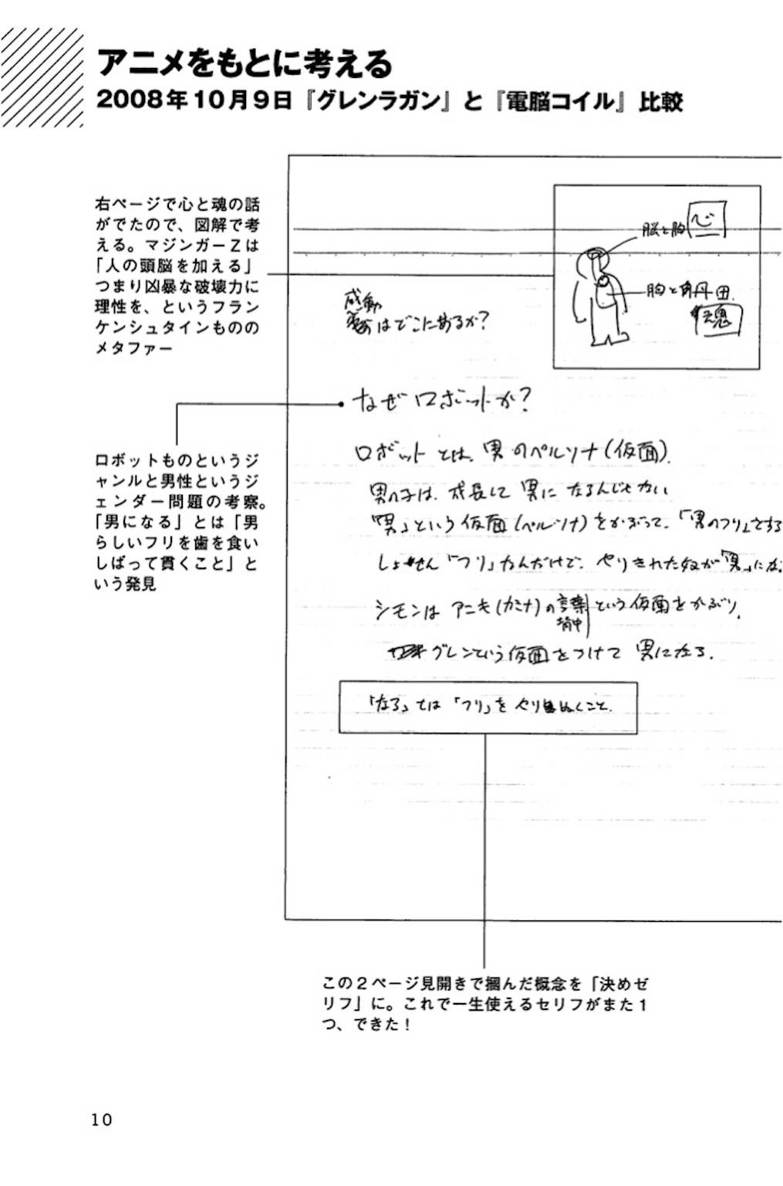 アニメをもとに考える
2008年10月9日『グレンラガン』と『電脳コイル』比較
右ページで心と魂の話
がでたので、図解で考
える。マジンガーZは
「人の頭脳を加える」
つまり凶暴な破壊力に
理性を、というフラン
ケンシュタインものの
メタファー
脳と胸 心
胸と 丹田
魂
感動
はどこにあるか?
なぜロボットか?
ロボットものというジ
ャンルと男性というジ
ェンダー問題の考察。
「男になる」とは「男
らしいフリを歯を食い
しばって貫くこと」と
いう発見
ロボットとは、男のペルソナ(仮面)。
男の子は、成長して男になるんじゃない
「男」という仮面(ペルソナ)をかぶって、「男のフリ」をする
しょせん「フリ」なんだけど、やりきれた奴が「男」にな
シモンはアニキ(カミナ)の言葉という仮面をかぶり、
背中
グレンという仮面をつけて男になる。
「なる」とは「フリ」をやりぬくこと。
この2ページ見開きで掴んだ概念を「決めゼ
リフ」に。これで一生使えるセリフがまた1
つ、できた!
10